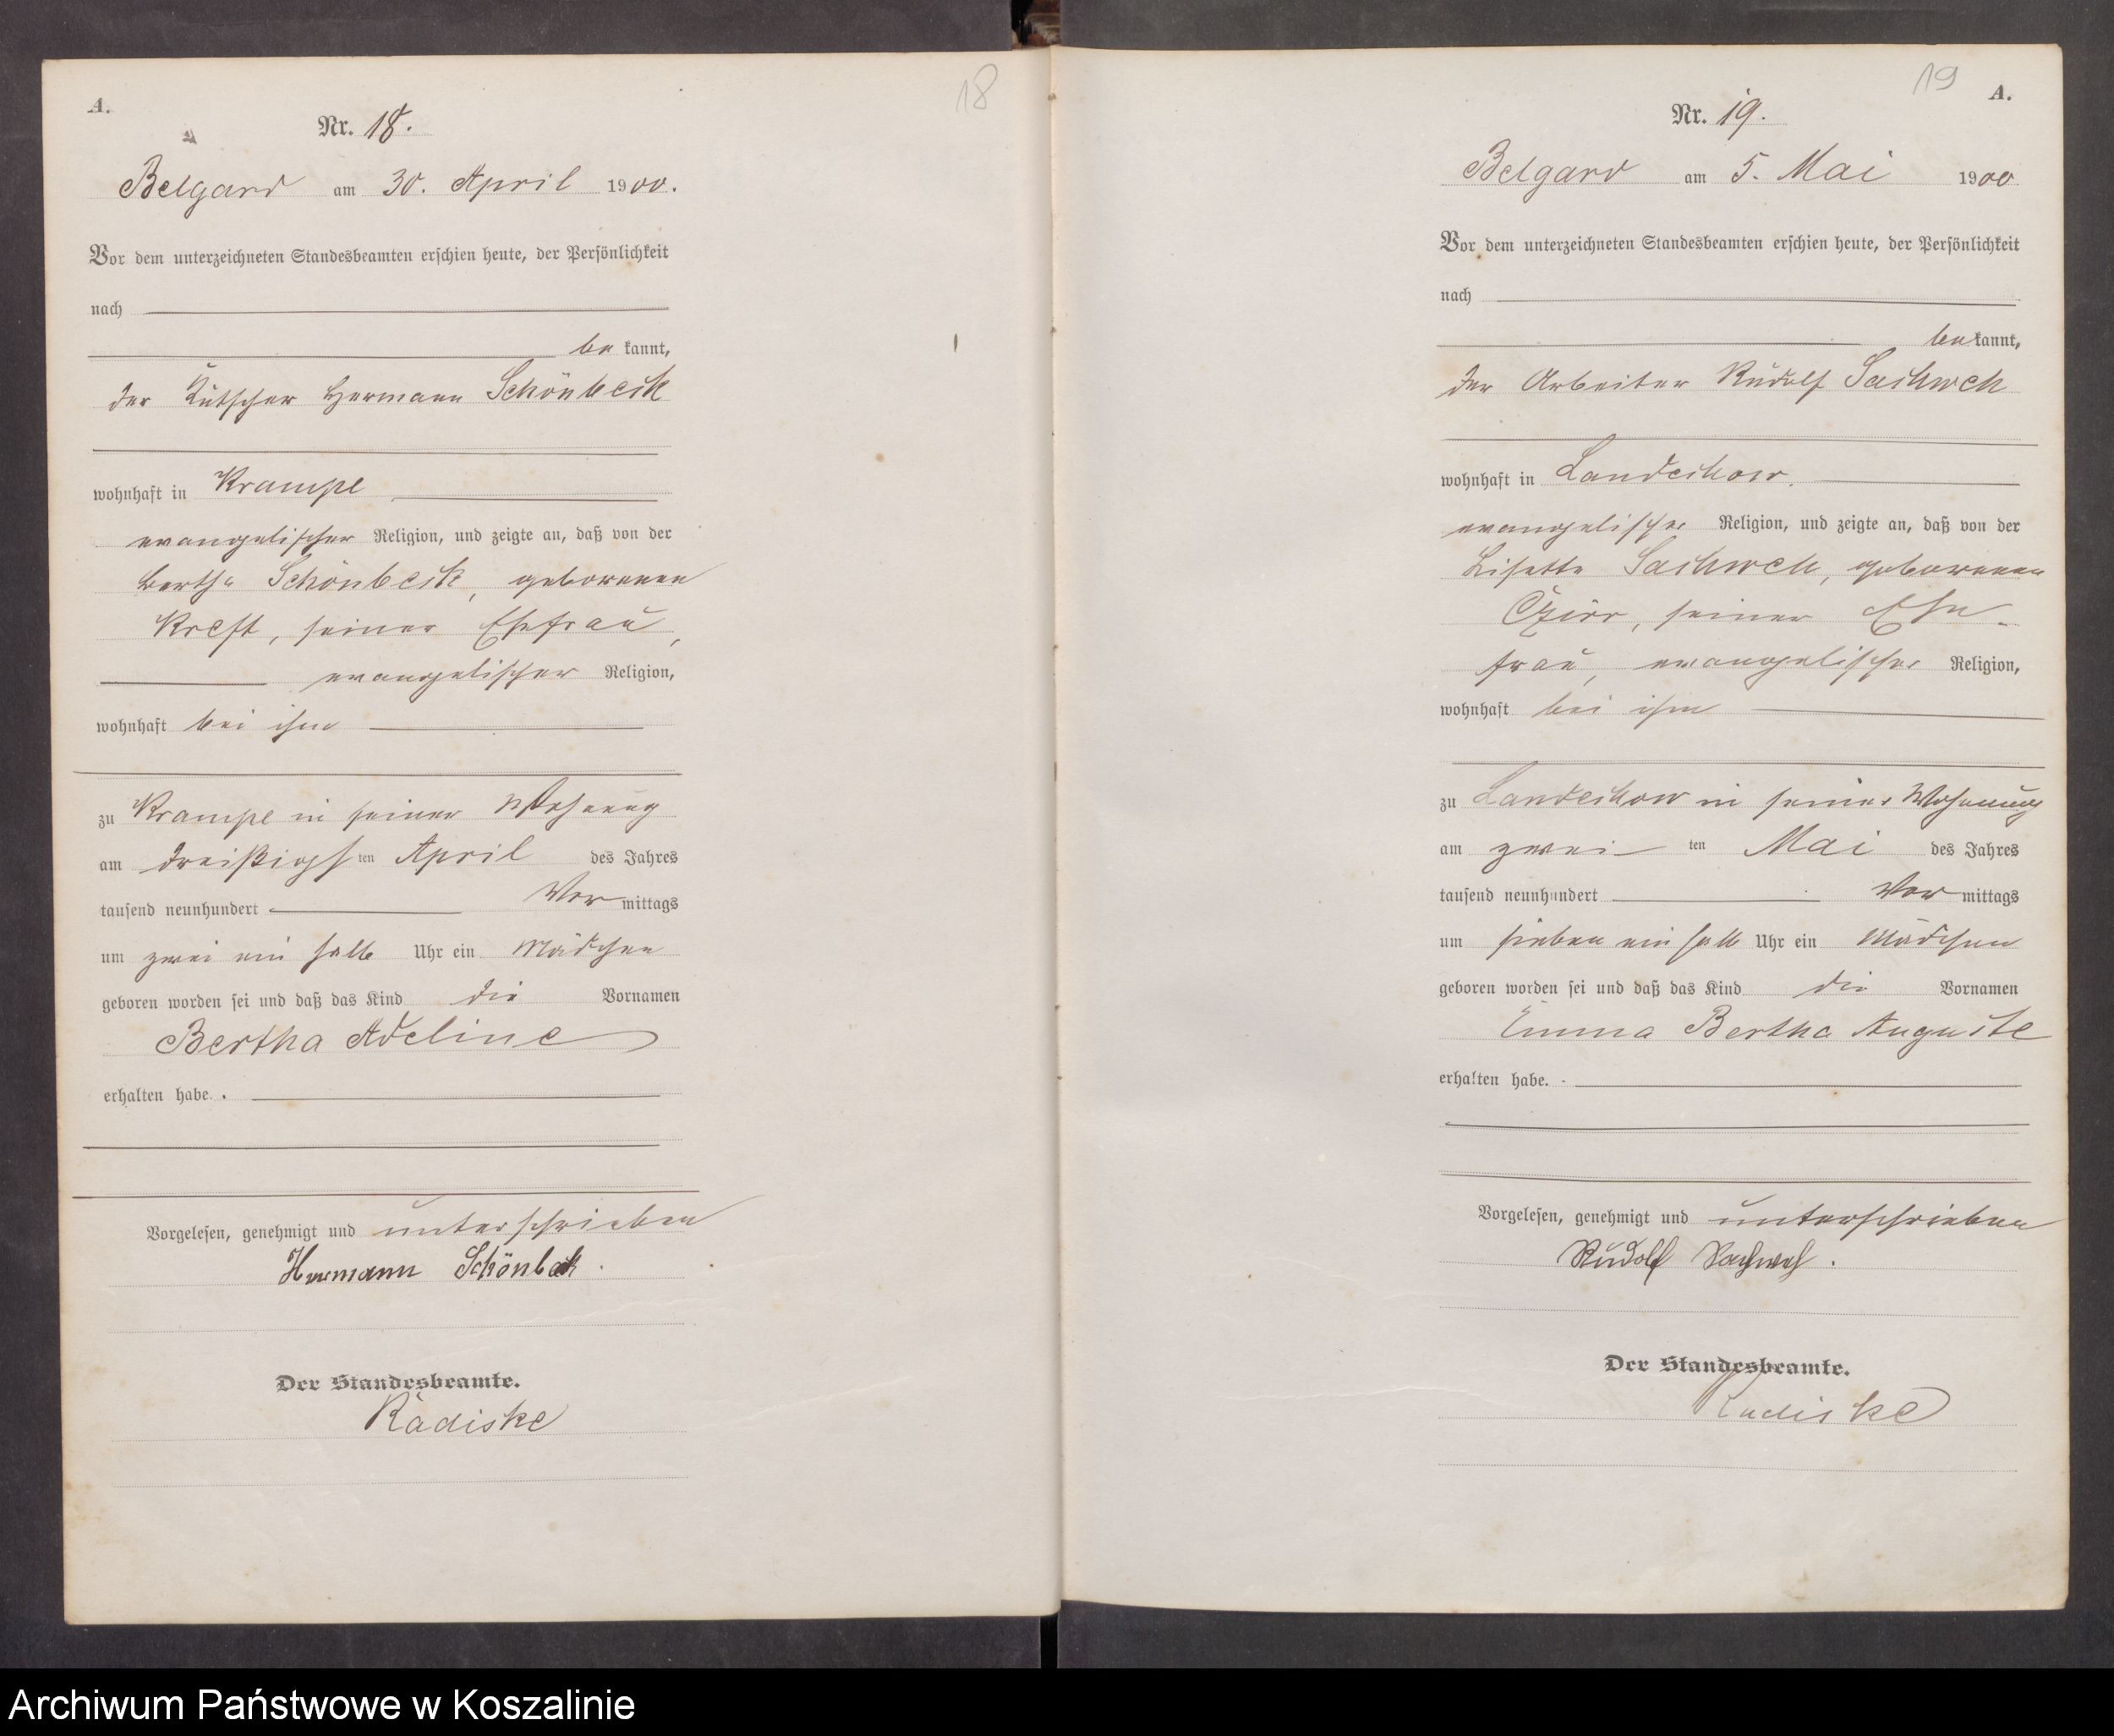 18
A.
Nr. 18.
Belgard am 30. April 1900.
Vor dem unterzeichneten Standesbeamten erschien heute, der Persönlichkeit
nach
be kannt,
der Kutscher Hermann Schönbeck
wohnhaft in Krampe
evangelischer Religion, und zeigte an, daß von der
Bertha Schönbeck, geborenen
Kreft, seiner Ehefrau,
evangelischer Religion,
wohnhaft bei ihm
zu Krampe in seiner Wohnung
am dreißigsten April des Jahres
tausend neunhundert Vor mittags
um zwei ein halb Uhr ein Mädchen
geboren worden sei und daß das Kind die Vornamen
Bertha Adeline
erhalten habe.
Vorgelesen, genehmigt und unterschrieben
Hermann Schönbeck.
Der Standesbeamte.
Radiske
19
A.
Nr. 19.
Belgard am 5. Mai 1900
Vor dem unterzeichneten Standesbeamten erschien heute, der Persönlichkeit
nach
bekannt,
der Arbeiter Rudolf Sachweh
wohnhaft in Landechow.
evangelischer Religion, und zeigte an, daß von der
Lisette Sachweh, geborenen
seiner Ehe-
frau, evangelischer Religion,
wohnhaft bei ihm
zu Landechow in seiner Wohnung
am zwei ten Mai des Jahres
tausend neunhundert Vor mittags
um sieben ein halb Uhr ein Mädchen
geboren worden sei und daß das Kind die Vornamen
Emma Bertha Auguste
erhalten habe.
Vorgelesen, genehmigt und unterschrieben
Rudolf Sachweh.
Der Standesbeamte.
Radiske
Archiwum Państwowe w Koszalinie